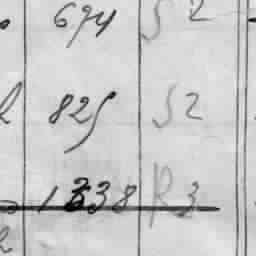 694 S 2
825 S2
1338 R3